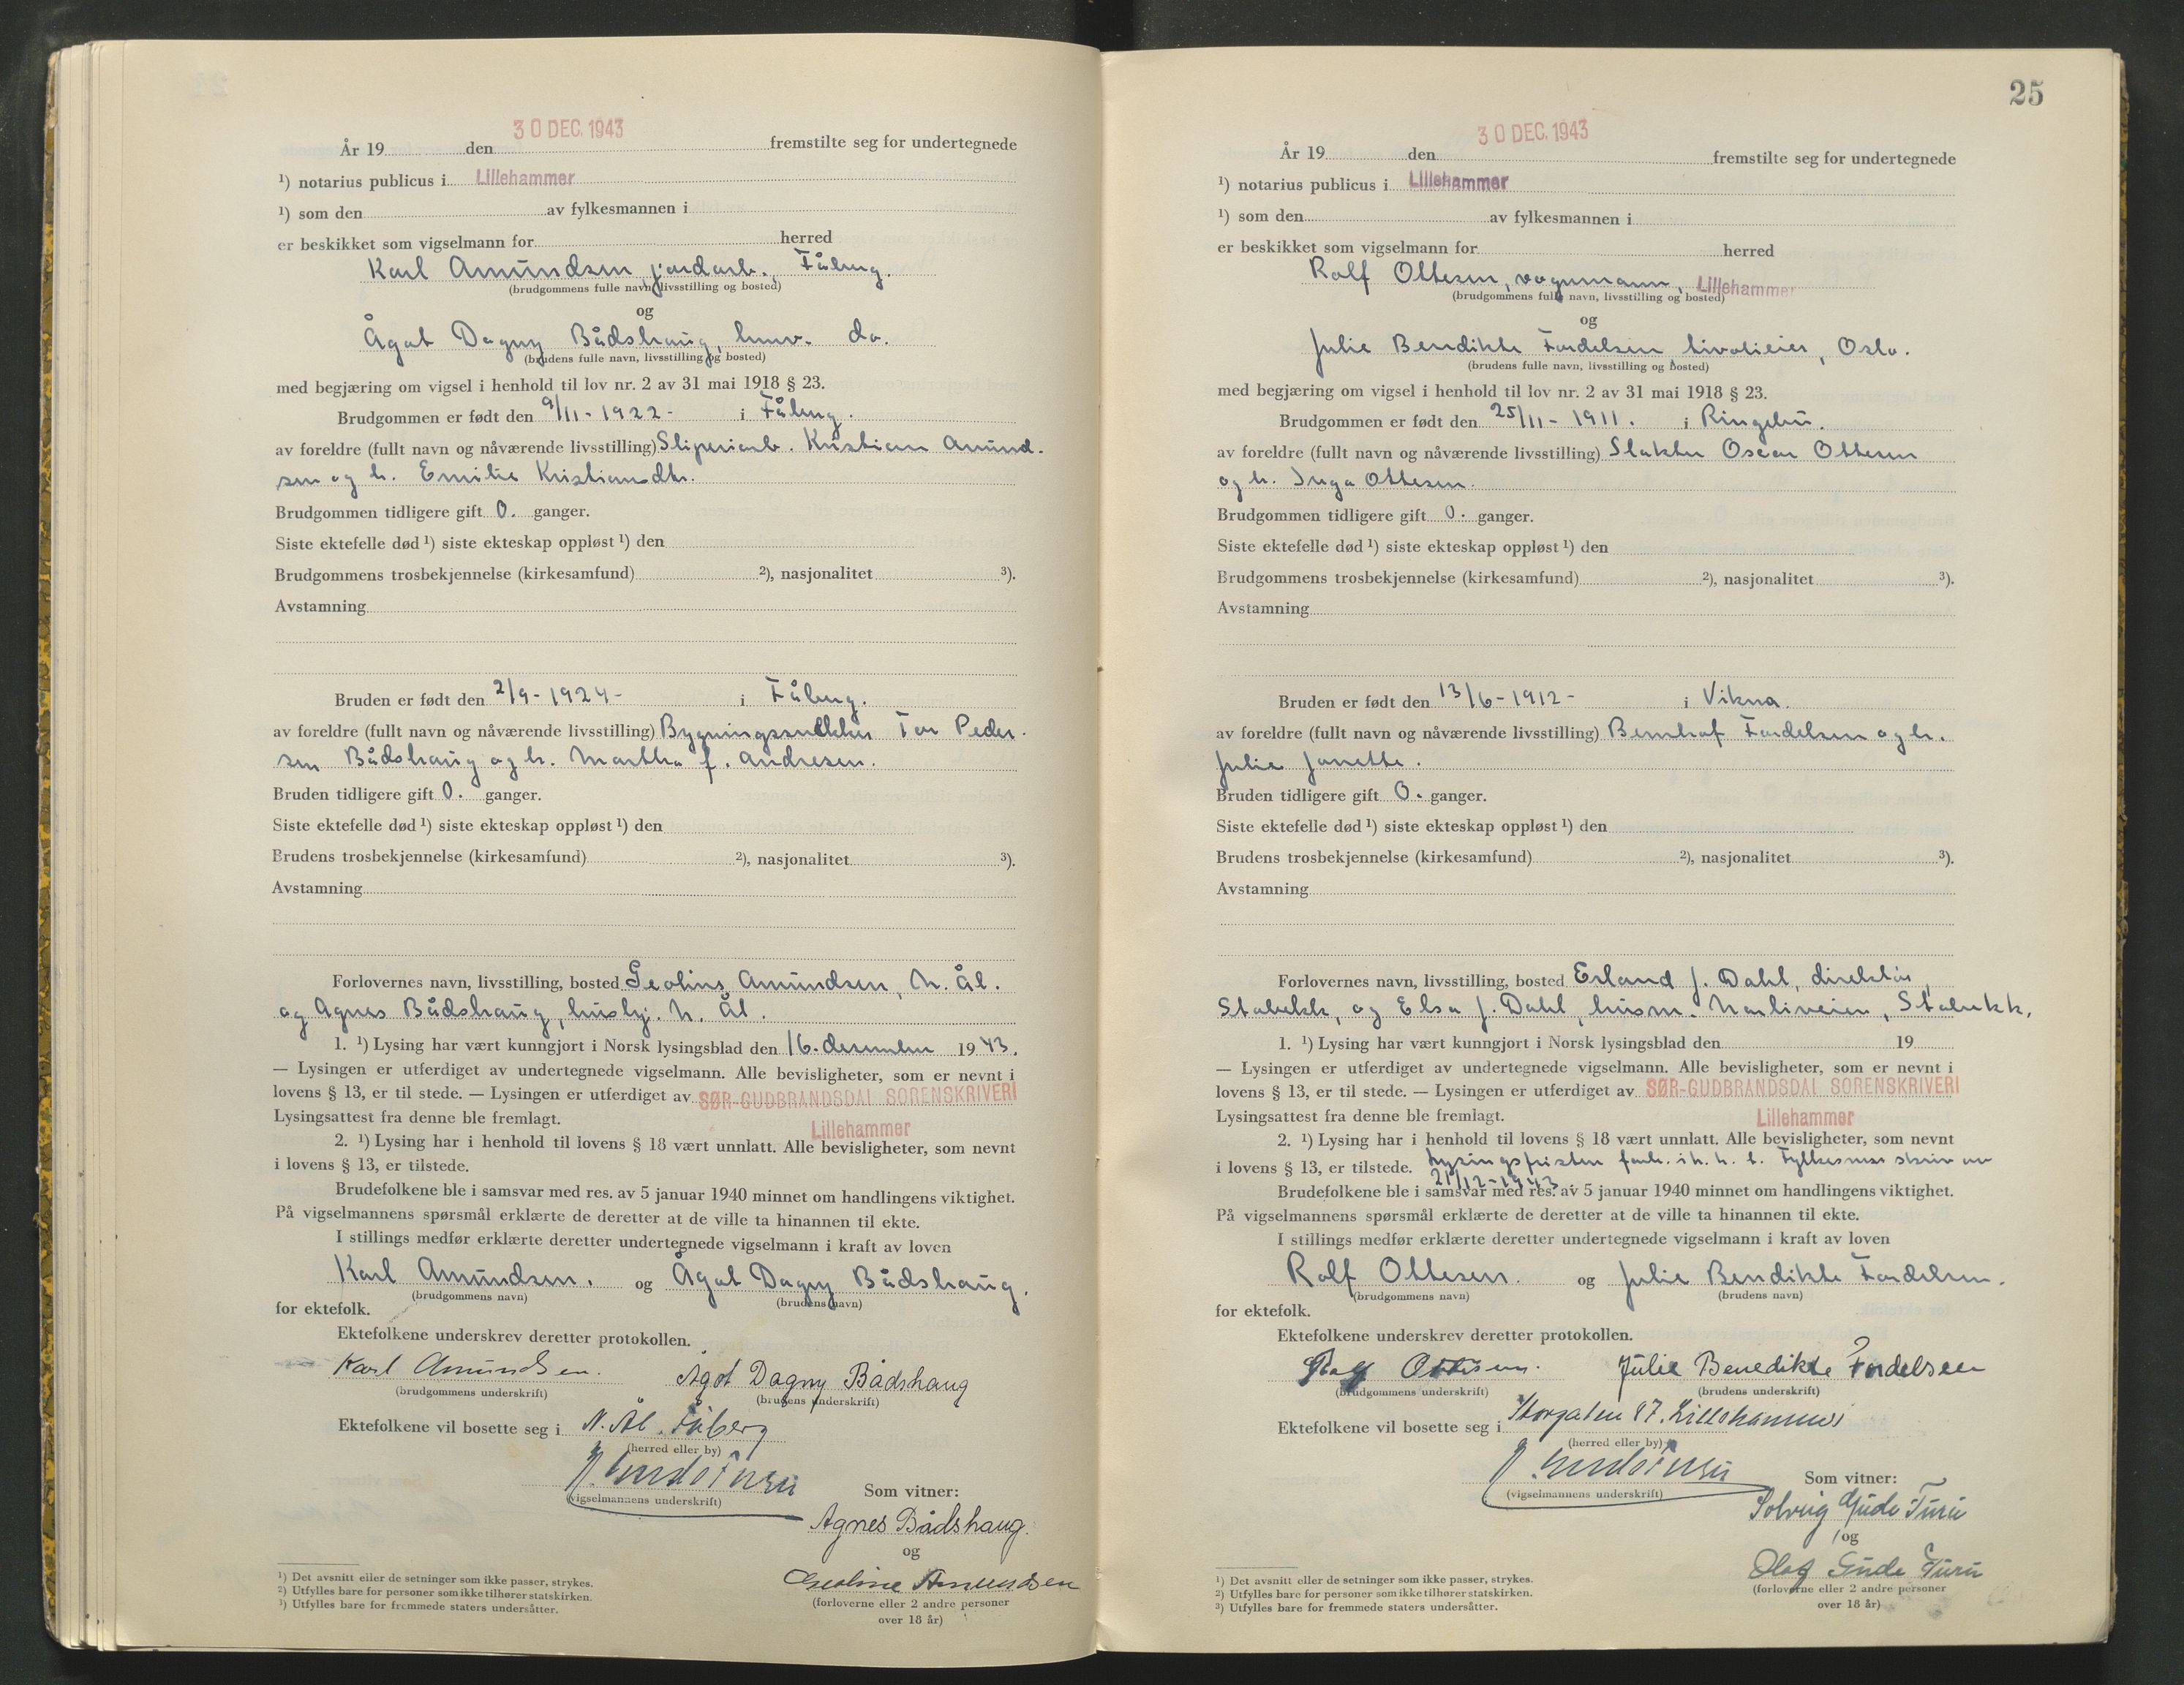 30 DEC. 1943
År 19 den fremstilte seg for undertegnede
¹) notarius publicus i Lillehammer
¹) som den av fylkesmannen i
er beskikket som vigselmann for herred
Karl Amundsen, jordarb., Fåberg.
(brudgommens fulle navn, livsstilling og bosted)
og
Ågot Dagny Bådshaug, husv. do.
(brudens fulle navn, livsstilling og bosted)
med begjæring om vigsel i henhold til lov nr. 2 av 31 mai 1918 § 23.
Brudgommen er født den 9/11-1922- i Fåberg.
av foreldre (fullt navn og nåværende livsstilling) Sliperiarb. Kristian Amund-
sen og h. Emilie Kristiansdtr.
Brudgommen tidligere gift 0. ganger.
Siste ektefelle død ¹) siste ekteskap oppløst ¹) den
Brudgommens trosbekjennelse (kirkesamfund) ²), nasjonalitet ³).
Avstamning
Bruden er født den 2/9-1924- i Fåberg.
av foreldre (fullt navn og nåværende livsstilling) Bygningssnekker Tor Peder-
sen Bådshaug og h. Martha f. Andresen.
Bruden tidligere gift 0. ganger.
Siste ektefelle død ¹) siste ekteskap oppløst ¹) den
Brudens trosbekjennelse (kirkesamfund) ²), nasjonalitet ³).
Avstamning
Forlovernes navn, livsstilling, bosted Amundsen, N. Ål.
og Agnes Bådshaug, hushj. N. Ål.
1. ¹) Lysing har vært kunngjort i Norsk lysingsblad den 16. desember 1943.
— Lysingen er utferdiget av undertegnede vigselmann. Alle bevisligheter, som er nevnt i
lovens § 13, er til stede. — Lysingen er utferdiget av SØR-GUDBRANDSDAL SORENSKRIVERI
Lysingsattest fra denne ble fremlagt.
Lillehammer
2. ¹) Lysing har i henhold til lovens § 18 vært unnlatt. Alle bevisligheter, som nevnt
i lovens § 13, er tilstede.
Brudefolkene ble i samsvar med res. av 5 januar 1940 minnet om handlingens viktighet.
På vigselmannens spørsmål erklærte de deretter at de ville ta hinannen til ekte.
I stillings medfør erklærte deretter undertegnede vigselmann i kraft av loven
Karl Amundsen. og Ågot Dagny Bådshaug.
(brudgommens navn) (brudens navn)
for ektefolk.
Ektefolkene underskrev deretter protokollen.
Karl Amundsen. Ågot Dagny Bådshaug
(brudgommens underskrift) (brudens underskrift)
Ektefolkene vil bosette seg i N. Ål. Fåberg
(herred eller by)
(vigselmannens underskrift)
Som vitner:
Agnes Bådshaug.
og
Amundsen
(forloverne eller 2 andre personer
over 18 år)
¹) Det avsnitt eller de setninger som ikke passer, strykes.
²) Utfylles bare for personer som ikke tilhører statskirken.
³) Utfylles bare for fremmede staters undersåtter.
25
30 DEC. 1943
År 19 den fremstilte seg for undertegnede
¹) notarius publicus i Lillehammer
¹) som den av fylkesmannen i
er beskikket som vigselmann for herred
Rolf Ottesen, vognmann, Lillehammer
(brudgommens fulle navn, livsstilling og bosted)
og
Julie Bendikte Fordelsen tivolieier, Oslo.
(brudens fulle navn, livsstilling og bosted)
med begjæring om vigsel i henhold til lov nr. 2 av 31 mai 1918 § 23.
Brudgommen er født den 25/11-1911. i Ringebu.
av foreldre (fullt navn og nåværende livsstilling) Slakter Oscar Ottesen
og h. Inga Ottesen.
Brudgommen tidligere gift 0. ganger.
Siste ektefelle død ¹) siste ekteskap oppløst ¹) den
Brudgommens trosbekjennelse (kirkesamfund) ²), nasjonalitet ³).
Avstamning
Bruden er født den 13/6-1912- i Vikna.
av foreldre (fullt navn og nåværende livsstilling) Fordelsen og h.
Julie Janette.
Bruden tidligere gift 0. ganger.
Siste ektefelle død ¹) siste ekteskap oppløst ¹) den
Brudens trosbekjennelse (kirkesamfund) ²), nasjonalitet ³).
Avstamning
Forlovernes navn, livsstilling, bosted Erland J. Dahl, direktør,
Stabekk, og Elsa J. Dahl, husm. Stabekk.
1. ¹) Lysing har vært kunngjort i Norsk lysingsblad den 19
— Lysingen er utferdiget av undertegnede vigselmann. Alle bevisligheter, som er nevnt i
lovens § 13, er til stede. — Lysingen er utferdiget av SØR-GUDBRANDSDAL SORENSKRIVERI
Lysingsattest fra denne ble fremlagt. Lillehammer
2. ¹) Lysing har i henhold til lovens § 18 vært unnlatt. Alle bevisligheter, som nevnt
i lovens § 13, er tilstede. Lysingsfristen fork. i h. h. t. Fylkesman skriv av
21/12-1943.
Brudefolkene ble i samsvar med res. av 5 januar 1940 minnet om handlingens viktighet.
På vigselmannens spørsmål erklærte de deretter at de ville ta hinannen til ekte.
I stillings medfør erklærte deretter undertegnede vigselmann i kraft av loven
Rolf Ottesen. og Julie Bendikte Fordelsen.
(brudgommens navn) (brudens navn)
for ektefolk.
Ektefolkene underskrev deretter protokollen.
Rolf Ottesen. Julie Benedikte Fordelsen
(brudgommens underskrift) (brudens underskrift)
Ektefolkene vil bosette seg i Storgaten 87. Lillehammer
(herred eller by)
(vigselmannens underskrift)
Som vitner:
Solveig Gude Furu
og
Olaf Gude Furu
(forloverne eller 2 andre personer
over 18 år)
¹) Det avsnitt eller de setninger som ikke passer, strykes.
²) Utfylles bare for personer som ikke tilhører statskirken.
³) Utfylles bare for fremmede staters undersåtter.